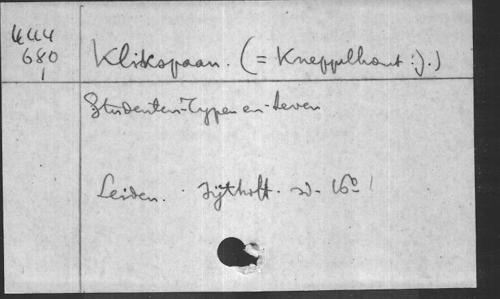 444
680
Klikspaan. (= Kneppelhout :J.)
Studenten-Typen en-Leven
Leiden. Sijthoff. z.j. 16º